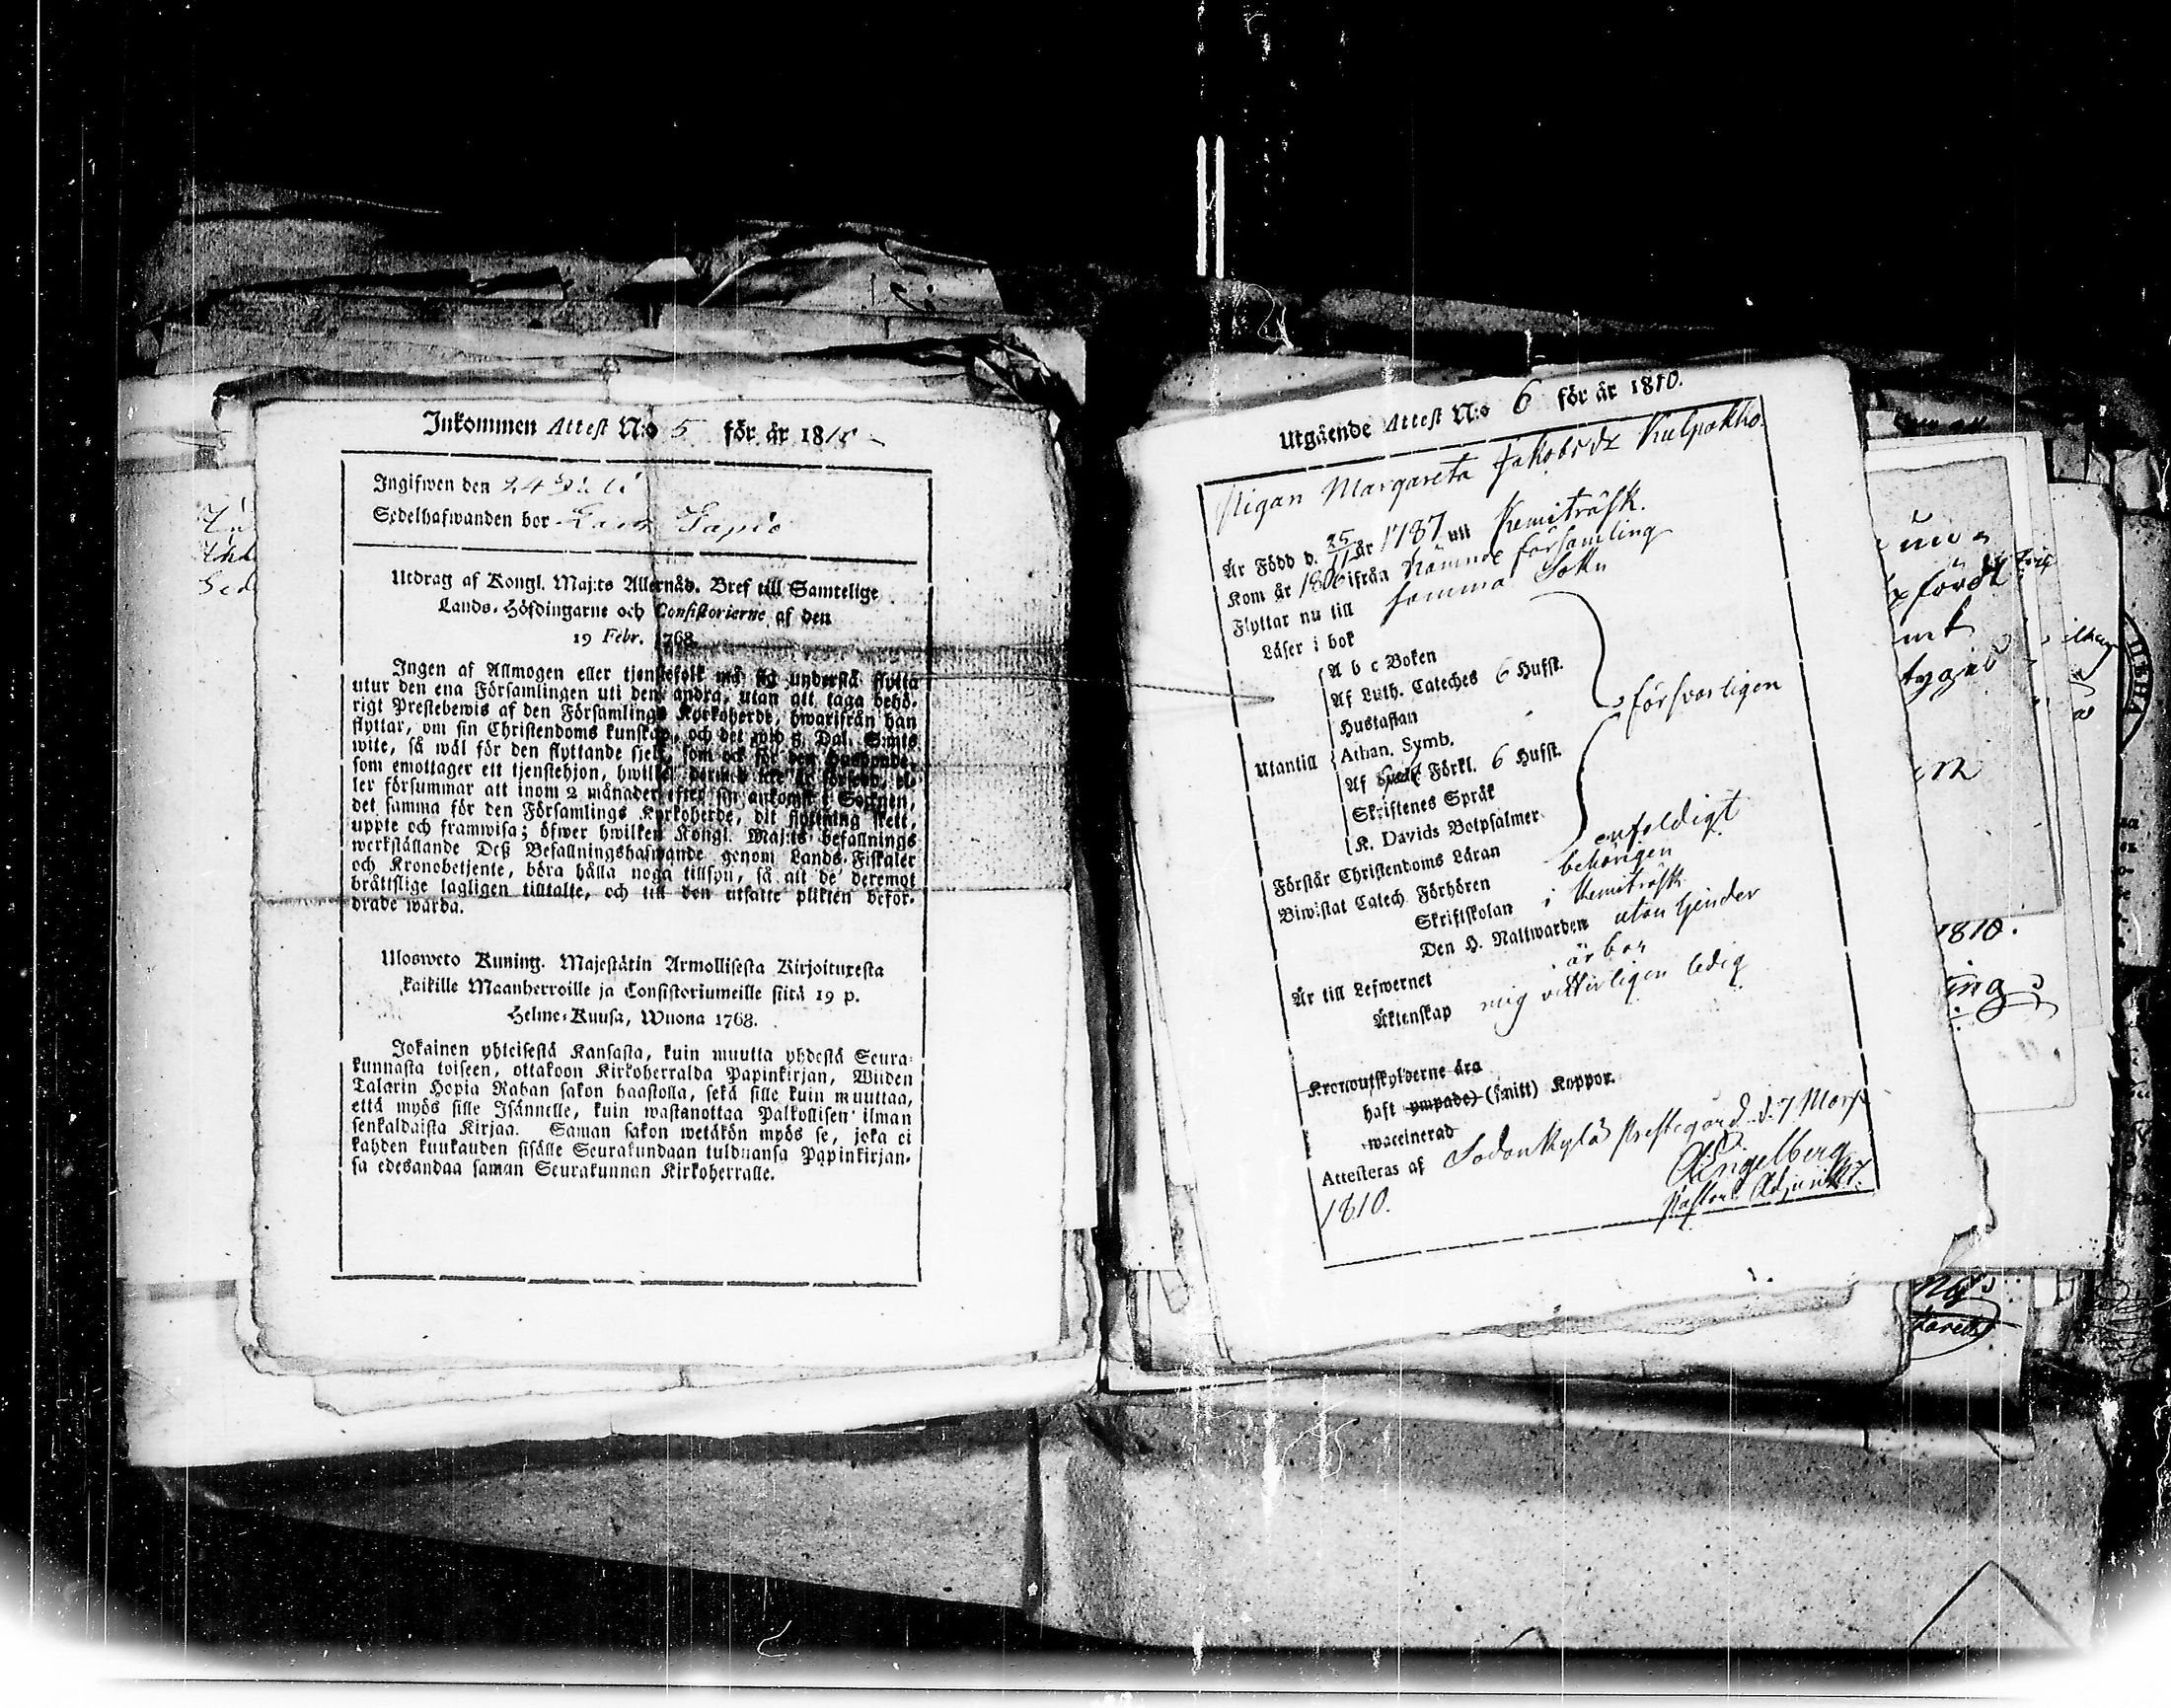 Inkommen Attest N:o 5 för år 1810
Ingifwen den 24 Juli
Sedelhafwanden bor
Utdrag af Kongl. Maj:ts Allernåd. Bref till Samtelige
Lands-Höfdingarne och Consistorierne af den
19 Febr. 1768.
Ingen af Allmogen eller tjenstefolk må sig understå flytta
utur den ena Församlingen uti den andra, utan att taga behö-
rigt Prestebewis af den Församlings Kyrkoherde, hwarifrån han
flyttar, om sin Christendoms kunskap, och det wid 5 Dal. S:mts
wite, så wäl för den flyttande sjelf, som ock för den Husbonde,
som emottager ett tjenstehjon, hwilket dermed icke är försedt, el-
ler försummar att inom 2 månader efter sin ankomst i Socknen,
det samma för den Församlings Kyrkoherde, dit flyttning skett,
uppte och framwisa; öfwer hwilken Kongl. Maj:ts befallnings
werkställande Deß Befallningshafwande genom Lands-Fiskaler
och Kronobetjente, böra hålla noga tillsyn, så att de deremot
bråttslige lagligen tilltalte, och till den utsatte plikten beför-
drade warda.
Ulosweto Kuning. Majestätin Armollisesta Kirjoituxesta
kaikille Maanherroille ja Consistoriumeille siitä 19 p.
Helme-Kuusa, Wuona 1768.
Jokainen yhteisestä Kansasta, kuin muutta yhdestä Seura-
kunnasta toiseen, ottakoon Kirkoherralda Papinkirjan, Wiiden
Talarin Hopia Rahan sakon haastolla, sekä sille kuin muuttaa,
että myös sille Isännelle, kuin wastanottaa Palkollisen ilman
senkaldaista Kirjaa. Saman sakon wetäkön myös se, joka ei
kahden kuukauden sisälle Seurakundaan tulduansa Papinkirjan-
sa edesandaa saman Seurakunnan Kirkoherralle.
Utgående Attest N:o 6 för år 1810.
Pigan Margareta Jakobsdr Kulpakko.
Är Född d. 25/11 år 1787 utt Kemiträsk.
Kom år 1806 ifrån nämnde församling
Flyttar nu till samma Sokn
Läser i bok
A b c Boken
Af Luth. Cateches 6 Hufst.
Hustaflan
Utantill Athan. Symb.
försvarligen
Af Förkl. 6 Hufst.
Skriftenes Språk
K. Davids Botpsalmer
Förstår Christendoms Läran enfaldigt
Biwistat Catech. Förhören behörigen
Skriftskolan i Kemiträsk
Den H. Nattwarden utan hinder
Är till Lefwernet ärbar
Äktenskap mig vitterligen ledig
Kronoutskylderne äro
haft ympade) (smitt) Koppor.
waccinerad
Attesteras af Sodankylä Prestegård d. 7 Mars
1810.
Engelberg
Pastors Adjunkt.
1810.